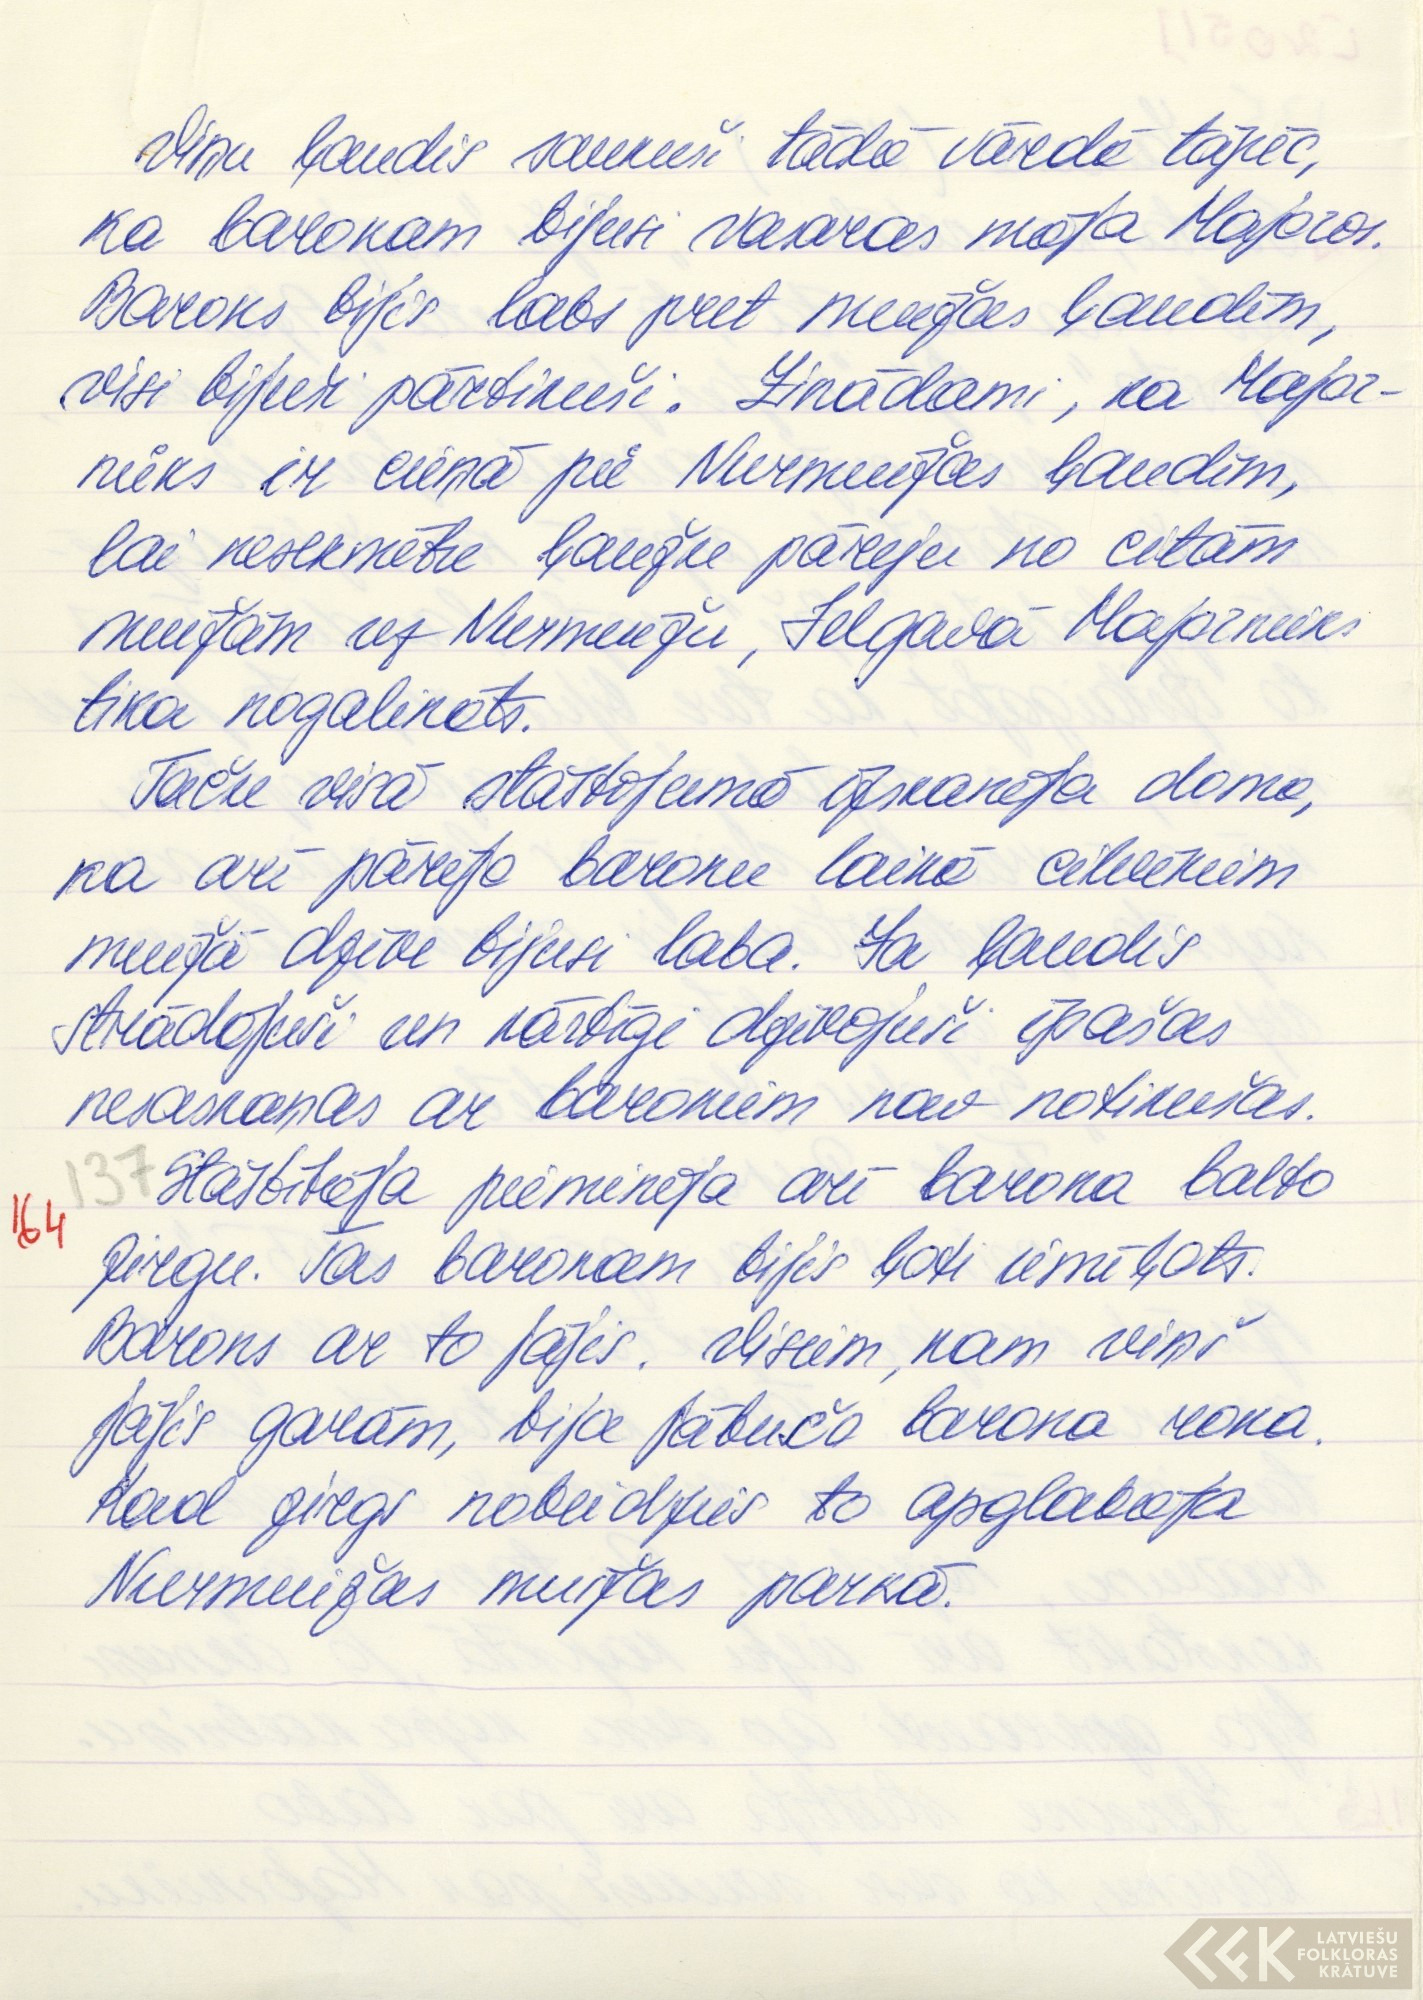 Viņu ļaudis saukuši tādā vārdā tāpēc,
ka baronam bijusi vasaras māja Majoros.
Barons bijis labs pret muižas ļaudīm,
visi bijuši pārtikuši. Zinādami, ka Major-
nieks ir ciemā pie Nurmuižas ļaudīm,
lai nesekmētu ļaužu pāreju no citām
muižām uz Nurmuižu, Jelgavā Majornieks
tika nogalināts.
Taču visā stāstījumā izskanēja doma,
ka arī pārējo baronu laikā cilvēkiem
muižā dzīve bijusi laba. Ja ļaudis
strādājuši un kārtīgi dzīvojuši īpašas
nesaskaņas ar baroniem nav notikušas.
137 Stāstītāja pieminēja arī barona balto
164
zirgu. Tas baronam bijis ļoti iemīļots.
Barons ar to jājis. Visiem, kam viņš
jājis garām, bija jābučo barona roka.
Kad zirgs nobeidzies to apglabāja
Nurmuižas muižas parkā.
LATVIEŠU
FOLKLORAS
KRĀTUVE